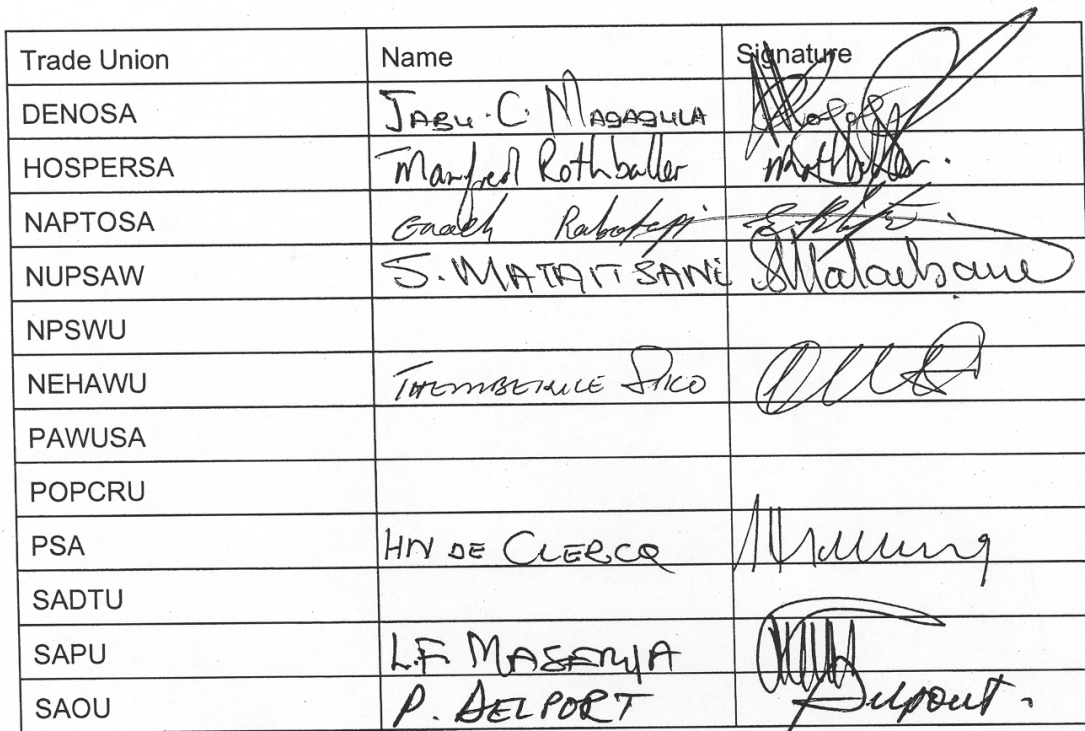 Trade Union Name Signature
DENOSA JABU. C. MAGAGULA
HOSPERSA Manfred Rothballer
NAPTOSA Enoch Rabotapi
NUPSAW S. MATAITSANE SMataitsane
NPSWU
NEHAWU
PAWUSA
POPCRU
PSA HN DE CLERCQ
SADTU
SAPU L.F MASERUA
SAOU P. DELPORT Delport.